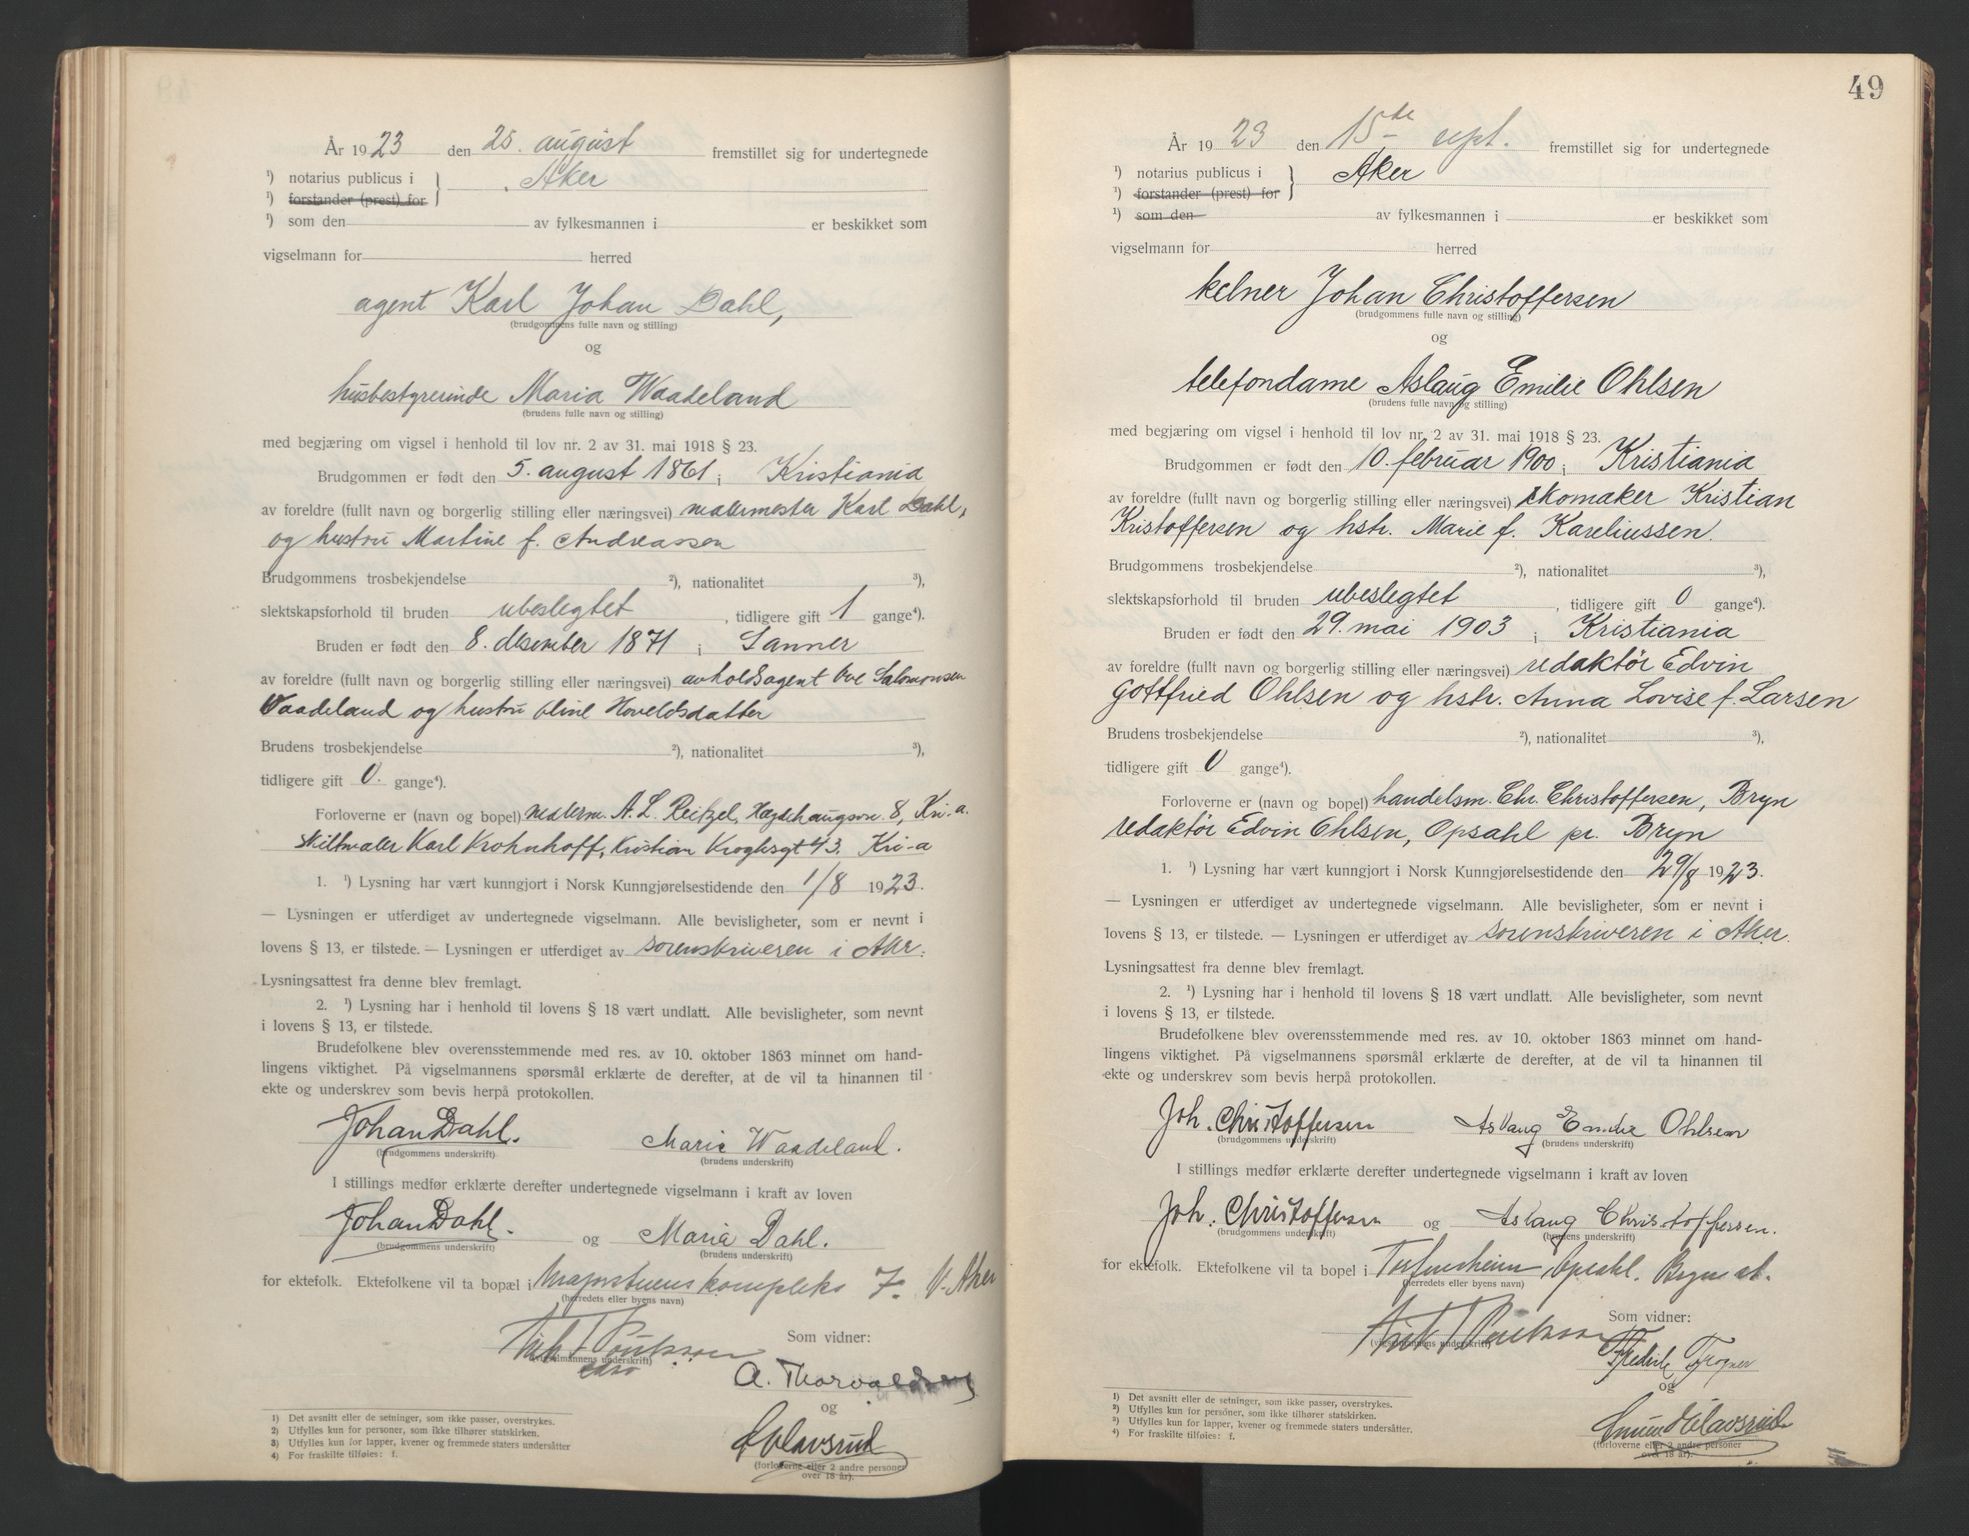 År 1923 den 25. august fremstillet sig for undertegnede
¹) notarius publicus i Aker
¹) forstander (prest) for
¹) som den av fylkesmannen i er beskikket som
vigselmann for herred
agent Karl Johan Dahl,
(brudgommens fulle navn og stilling)
og
husbestyrerinde Maria Waadeland
(brudens fulle navn og stilling)
med begjæring om vigsel i henhold til lov nr. 2 av 31. mai 1918 § 23.
Brudgommen er født den 5. august 1861 i Kristiania
av foreldre (fullt navn og borgerlig stilling eller næringsvei) malermester Karl Dahl,
og hustru Martine f. Andreassen
Brudgommens trosbekjendelse ²), nationalitet ³),
slektskapsforhold til bruden ubeslegtet, tidligere gift 1 gange⁴).
Bruden er født den 8. desember 1871 i Sanner
av foreldre (fullt navn og borgerlig stilling eller næringsvei) avholdsagent Ove Salomonsen
Waadeland og hustru Oline Hoveldsdatter
Brudens trosbekjendelse ²), nationalitet ³),
tidligere gift 0. gange⁴).
Forloverne er (navn og bopel) malerm. A. L. Reitzel, Hægdehaugsvn. 8, Kr.-a.
skiltmaler Karl Krohnhoff, Kristian Kroghsgt 43. Kri-a
1. ¹) Lysning har vært kunngjort i Norsk Kunngjørelsestidende den 1/8 1923.
— Lysningen er utferdiget av undertegnede vigselmann. Alle bevisligheter, som er nevnt i
lovens § 13, er tilstede. — Lysningen er utferdiget av sorenskriveren i Aker.
Lysningsattest fra denne blev fremlagt.
2. ¹) Lysning har i henhold til lovens § 18 vært undlatt. Alle bevisligheter, som nevnt
i lovens § 13, er tilstede.
Brudefolkene blev overensstemmende med res. av 10. oktober 1863 minnet om hand-
lingens viktighet. På vigselmannens spørsmål erklærte de derefter, at de vil ta hinannen til
ekte og underskrev som bevis herpå protokollen.
Johan Dahl. Maria Waadeland.
(brudgommens underskrift) (brudens underskrift)
I stillings medfør erklærte derefter undertegnede vigselmann i kraft av loven
Johan Dahl. og Maria Dahl.
(brudgommens underskrift) (brudens underskrift)
for ektefolk. Ektefolkene vil ta bopæl i Majorstuens kompleks 7 V. Aker
(herredets eller byens navn)
Som vidner:
(vigselmannens underskrift)
A. Thorvaldsen
og
Olavsrud
(forloverne eller 2 andre personer
over 18 år).
1) Det avsnitt eller de setninger, som ikke passer, overstrykes.
2) Utfylles kun for personer, som ikke tilhører statskirken.
3) Utfylles kun for lapper, kvener og fremmede staters undersåtter
4) For fraskilte tilføies: f.
49
År 1923 den 15de sept. fremstillet sig for undertegnede
¹) notarius publicus i Aker
¹) forstander (prest) for
¹) som den av fylkesmannen i er beskikket som
vigselmann for herred
kelner Johan Christoffersen
(brudgommens fulle navn og stilling)
og
telefondame Aslaug Emilie Ohlsen
(brudens fulle navn og stilling)
med begjæring om vigsel i henhold til lov nr. 2 av 31. mai 1918 § 23.
Brudgommen er født den 10. februar 1900 i Kristiania
av foreldre (fullt navn og borgerlig stilling eller næringsvei) skomaker Kristian
Kristoffersen og hstr. Marie f. Kareliussen.
Brudgommens trosbekjendelse ²), nationalitet ³),
slektskapsforhold til bruden ubeslegtet, tidligere gift 0 gange⁴).
Bruden er født den 29. mai 1903 i Kristiania
av foreldre (fullt navn og borgerlig stilling eller næringsvei) redaktør Edvin
Gottfried Ohlsen og hstr. Anna Lovise f. Larsen
Brudens trosbekjendelse ²), nationalitet ³),
tidligere gift 0 gange⁴).
Forloverne er (navn og bopel) handelsm. Chr. Christoffersen, Bryn
redaktør Edvin Ohlsen, Opsahl pr. Bryn
1. ¹) Lysning har vært kunngjort i Norsk Kunngjørelsestidende den 29/8 1923.
— Lysningen er utferdiget av undertegnede vigselmann. Alle bevisligheter, som er nevnt i
lovens § 13, er tilstede. — Lysningen er utferdiget av sorenskriveren i Aker.
Lysningsattest fra denne blev fremlagt.
2. ¹) Lysning har i henhold til lovens § 18 vært undlatt. Alle bevisligheter, som nevnt
i lovens § 13, er tilstede.
Brudefolkene blev overensstemmende med res. av 10. oktober 1863 minnet om hand-
lingens viktighet. På vigselmannens spørsmål erklærte de derefter, at de vil ta hinannen til
ekte og underskrev som bevis herpå protokollen.
Joh. Christoffersen Aslaug Emilie Ohlsen
(brudgommens underskrift) (brudens underskrift)
I stillings medfør erklærte derefter undertegnede vigselmann i kraft av loven
Joh. Christoffersen og Aslaug Christoffersen.
(brudgommens underskrift) (brudens underskrift)
for ektefolk. Ektefolkene vil ta bopel i Opsahl. Bryn st.
(herredets eller byens navn)
Som vidner:
(vigselmannens underskrift)
Fredrik Trogner
og
Olavsrud
(forloverne eller 2 andre personer
over 18 år).
1) Det avsnitt eller de setninger, som ikke passer, overstrykes.
2) Utfylles kun for personer, som ikke tilhører statskirken.
3) Utfylles kun for lapper, kvener og fremmede staters undersåtter.
4) For fraskilte tilføies: f.